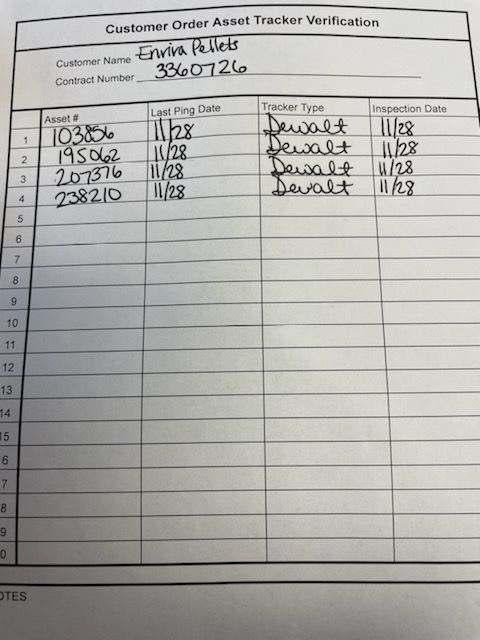 Customer Order Asset Tracker Verification
Customer Name Envira Pellets
Contract Number 3360726
Asset # Last Ping Date Tracker Type Inspection Date
1 103856 11/28 Dewalt 11/28
2 195062 11/28 Dewalt 11/28
3 207376 11/28 Dewalt 11/28
4 238210 11/28 Dewalt 11/28
5
6
7
8
9
10
11
12
13
14
15
6
7
8
9
0
OTES